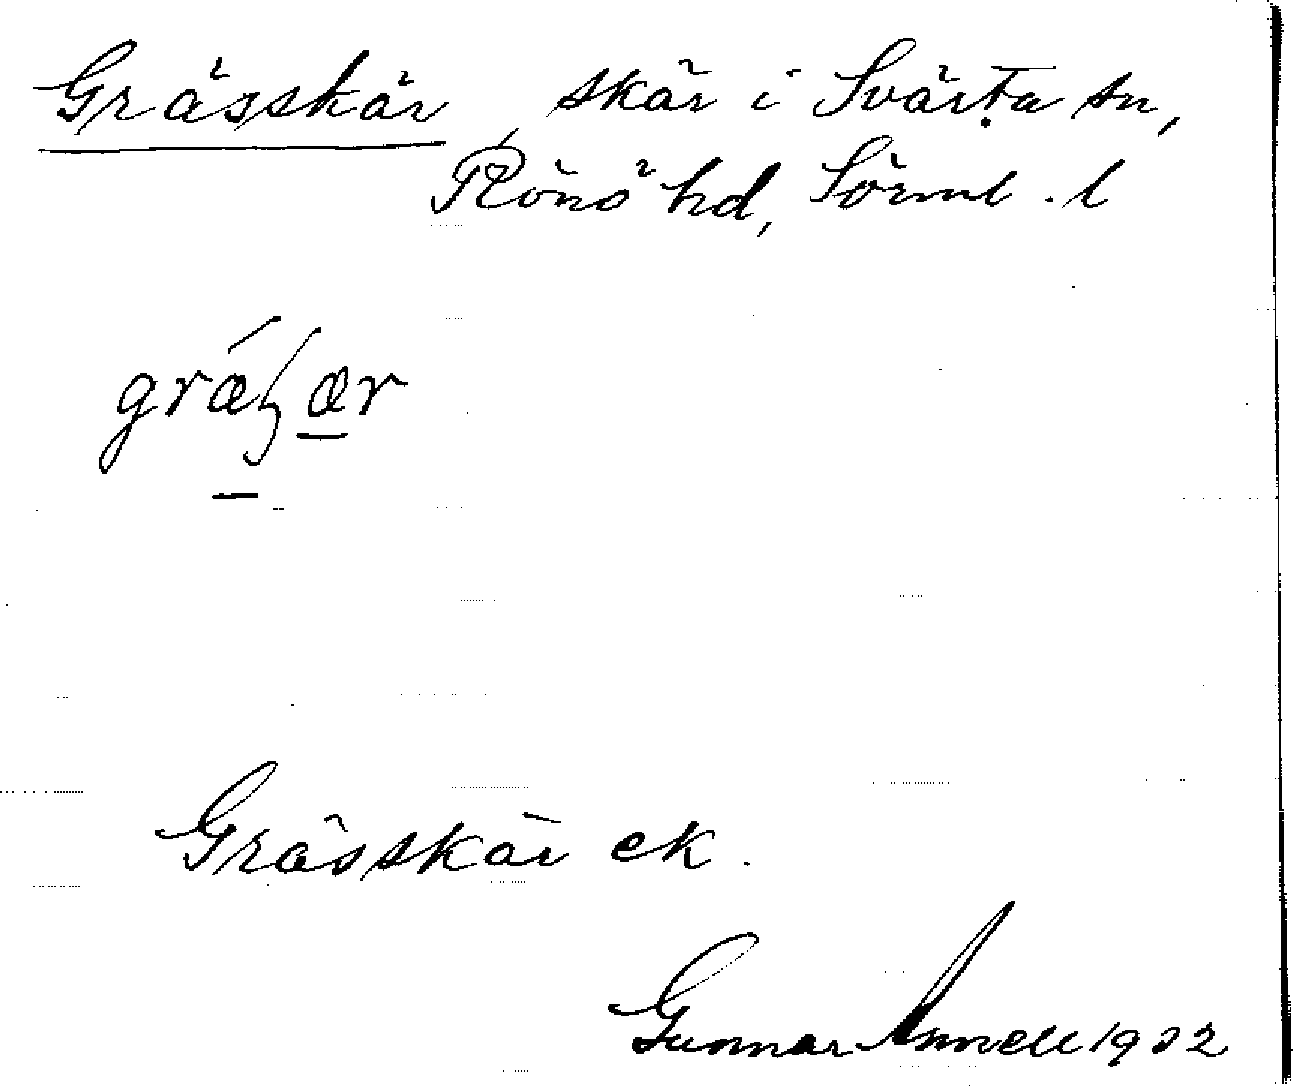 Grässkär, skär i Svärta sn,
Rönö hd, Sörml. l
Grässkär ek.
Gunnar Annell 1932